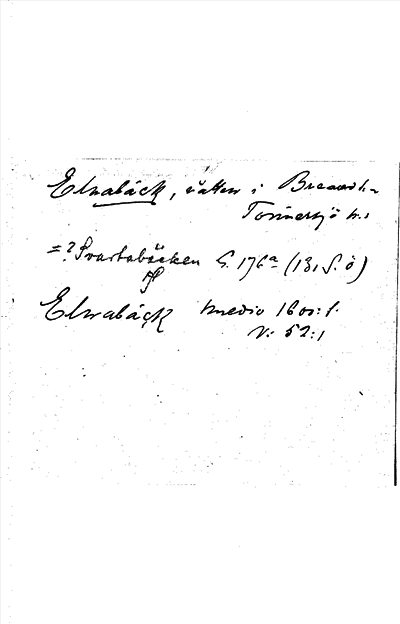 Elnabäck, vatten i Breared s-
Tönnersjö h.,
=? Svartabäcken G. 176a (13, S. ö)
Elnabäck medio 1600: t.
V: 52:1